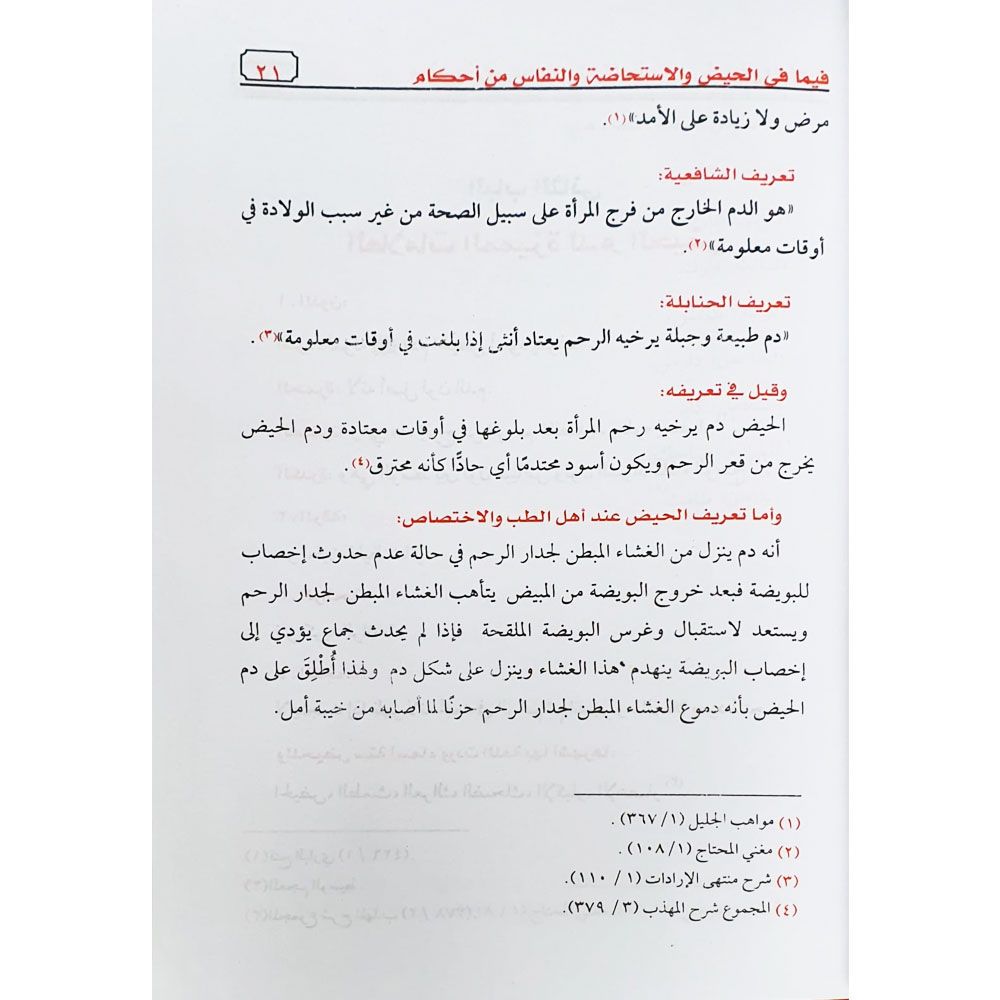 فيما في الحيض والاستحاضة والنفاس من أحكام ٢١
مرض ولا زيادة على الأمد»(١).
تعريف الشافعية:
«هو الدم الخارج من فرج المرأة على سبيل الصحة من غير سبب الولادة في
أوقات معلومة»(٢).
تعريف الحنابلة:
«دم طبيعة وجبلة يرخيه الرحم يعتاد أنثى إذا بلغت في أوقات معلومة»(٣).
وقيل في تعريفه:
الحيض دم يرخيه رحم المرأة بعد بلوغها في أوقات معتادة ودم الحيض
يخرج من قعر الرحم ويكون أسود محتدمًا أي حادًّا كأنه محترق(٤).
وأما تعريف الحيض عند أهل الطب والاختصاص:
أنه دم ينزل من الغشاء المبطن لجدار الرحم في حالة عدم حدوث إخصاب
للبويضة فبعد خروج البويضة من المبيض يتأهب الغشاء المبطن لجدار الرحم
ويستعد لاستقبال وغرس البويضة الملقحة فإذا لم يحدث جماع يؤدي إلى
إخصاب البويضة ينهدم هذا الغشاء وينزل على شكل دم ولهذا أُطْلِقَ على دم
الحيض بأنه دموع الغشاء المبطن لجدار الرحم حزنًا لما أصابه من خيبة أمل.
(١) مواهب الجليل (١/ ٣٦٧) .
(٢) مغني المحتاج (١/ ١٠٨) .
(٣) شرح منتهى الإرادات (١ / ١١٠).
(٤) المجموع شرح المهذب (٣ / ٣٧٩).